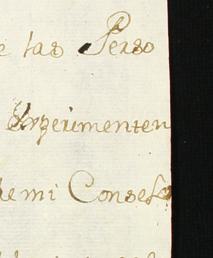 e las Perso
Experimenten
de mi Consejo